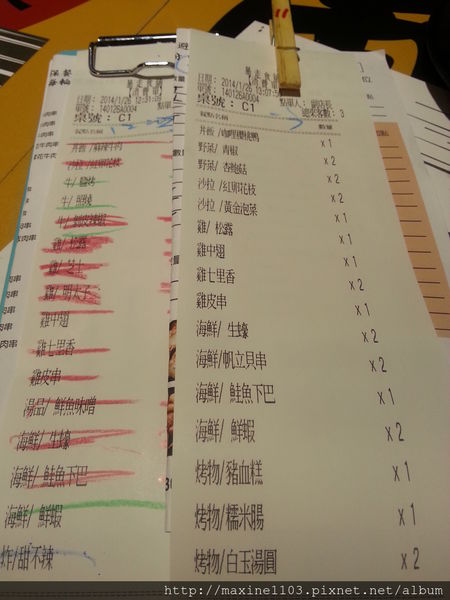 日期: 2014/01/26 12:31
單號: 140126A0004
桌號: C1
餐點名稱
丼飯/麻辣牛肉
沙拉/紅卵花枝
牛/鹽烤
牛/照燒
雞/松露
雞/芝士
雞/明太子
雞中翅
雞七里香
雞皮串
湯品/鮮魚味噌
海鮮/生蠔
海鮮/鮭魚下巴
海鮮/鮮蝦
炸/甜不辣
日期: 2014/01/26 13:07:5
單號: 140126A0004
桌號: C1
點單人: 副店長
總來客數: 3
餐點名稱 數量
x1
野菜/青椒 x2
野菜/杏鮑菇 x2
沙拉/紅卵花枝 x2
沙拉/黃金泡菜 x1
雞/松露 x1
雞中翅 x2
雞七里香 x1
雞皮串 x2
海鮮/生蠔 x2
海鮮/帆立貝串 x1
海鮮/鮭魚下巴 x2
海鮮/鮮蝦 x1
烤物/豬血糕 x1
烤物/糯米腸 x2
烤物/白玉湯圓
http://maxine1103.pixnet.net/album